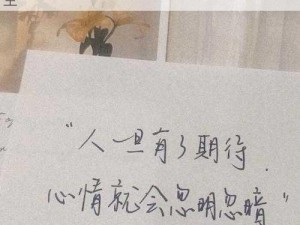 “人一旦有了期待，
心情就会忽明忽暗”